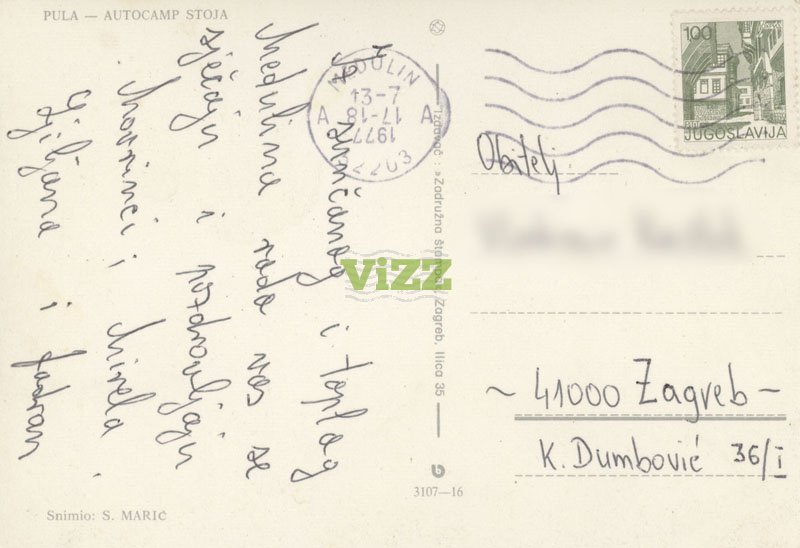 PULA — AUTOCAMP STOJA
Iz sunčanog i toplog
Medulina rado vas se
sjećaju i pozdravljaju
i Mirela
Ljiljana i
MEDULIN
7-34
17-18
1977
52203
A A
Izdavač: »Zadružna štampa«, Zagreb, Ilica 35
ViZZ
100
JUGOSLAVIJA
Obitelj
~ 41000 Zagreb ~
K. Dumbović 36/I
3107—16
Snimio: S. MARIĆ